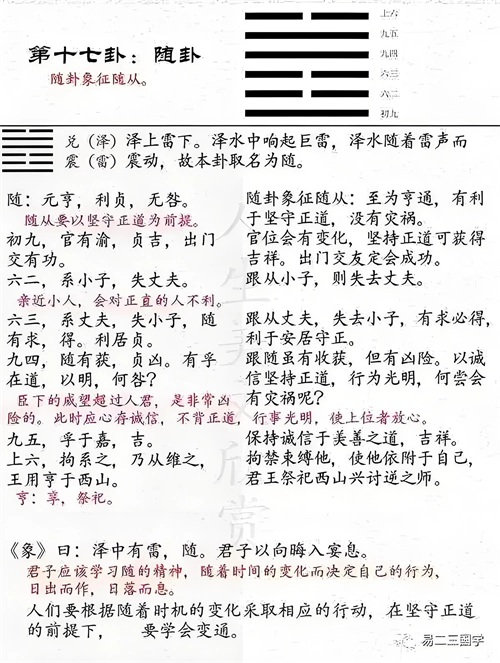 第十七卦：随卦
随卦象征随从。
上六
九五
九四
六三
六二
初九
兑（泽）泽上雷下。泽水中响起巨雷，泽水随着雷声而
震（雷）震动，故本卦取名为随。
随：元亨，利贞，无咎。
随从要以坚守正道为前提。
初九，官有渝，贞吉，出门
交有功。
六二，系小子，失丈夫。
亲近小人，会对正直的人不利。
六三，系丈夫，失小子，随
有求，得。利居贞。
九四，随有获，贞凶。有孚
在道，以明，何咎？
臣下的威望超过人君，是非常凶
险的。此时应心存诚信，不背正道，行事光明，使上位者放心。
九五，孚于嘉，吉。
上六，拘系之，乃从维之，
王用亨于西山。
亨：享，祭祀。
随卦象征随从：至为亨通，有利
于坚守正道，没有灾祸。
官位会有变化，坚持正道可获得
吉祥。出门交友定会成功。
跟从小子，则失去丈夫。
跟从丈夫，失去小子，有求必得，
利于安居守正。
跟随虽有收获，但有凶险。以诚
信坚持正道，行为光明，何尝会
有灾祸呢？
保持诚信于美善之道，吉祥。
拘禁束缚他，使他依附于自己，
君王祭祀西山兴讨逆之师。
《象》曰：泽中有雷，随。君子以向晦入宴息。
君子应该学习随的精神，随着时间的变化而决定自己的行为，
日出而作，日落而息。
人们要根据随着时机的变化采取相应的行动，在坚守正道
的前提下， 要学会变通。
易二三国学